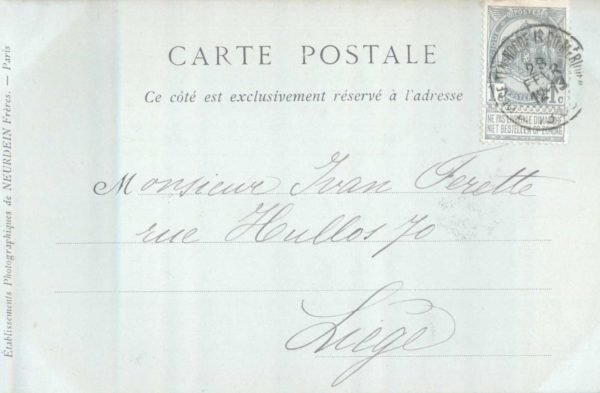 CARTE POSTALE
Ce côté est exclusivement réservé à l'adresse
Monsieur Ivan Ferette
rue Hullos 70
Liège
Établissements Photographiques de NEURDEIN Frères. — Paris
POSTES
1 C
NE PAS LIVRER LE DIMANCHE
NIET BESTELLEN OP ZONDAG
FEVR